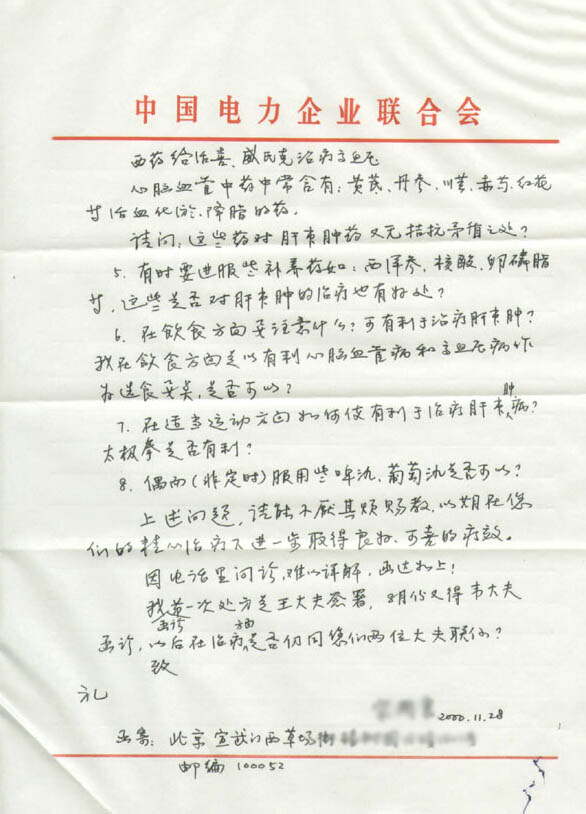 中国电力企业联合会
西药给洛喜、威氏克治疗高血压
心脑血管中药中常含有：黄芪、丹参、川芎、赤芍、红花
等活血化瘀、降脂的药。
请问：这些药对肝囊肿药又无拮抗矛盾之处？
5. 有时要进服些补养药如：西洋参、核酸、卵磷脂
等，这些是否对肝囊肿的治疗也有好处？
6. 在飲食方面要注意什么？可有利于治疗肝囊肿？
我在飲食方面是以有利心脑血管病和高血压病作
为进食要点，是否可以？
7. 在适当运动方面如何使有利于治疗肝囊肿病？
太极拳是否有利？
8. 偶而（非定时）服用些啤氿、葡萄氿是否可以？
上述问题，请能不厌其烦赐教，以期在您
们的精心治疗下进一步取得良好、可喜的疗效。
因电话里问诊，难以详解，函达如上！
我第一次处方是王大夫签署，8月份又得韦大夫
函诊，以后在治疗方面是否仍同您们两位大夫联係？
致
礼
2000.11.28
函寄：北京宣武门西草场街
邮编 100052